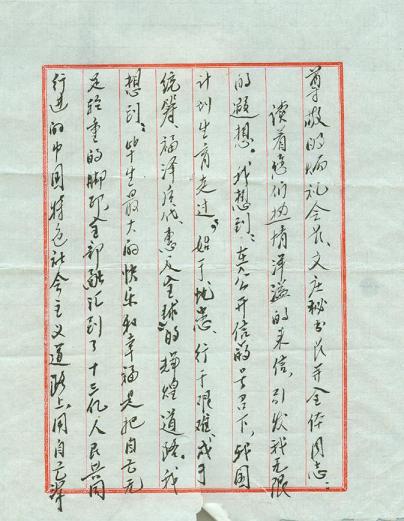 尊敬的炳礼会长、文庄秘书长并全体同志：
读着你们热情洋溢的来信，引发我无限
的遐想。我想到：在公开信的号召下，我国
计划生育走过了始于忧患、行于艰难、成于
统筹、福泽后代、惠及全球的辉煌道路。我
想到：毕生最大的快乐和幸福是把自己无
足轻重的脚印全部融汇到了十三亿人民共同
行进的中国特色社会主义道路上，用自己